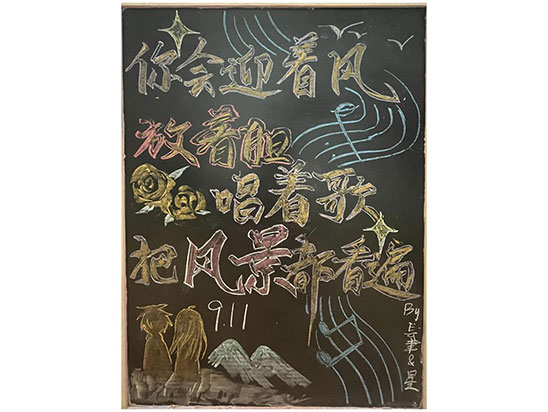 你会迎着风
放着胆
唱着歌
把风景都看遍
9.11
By
&星